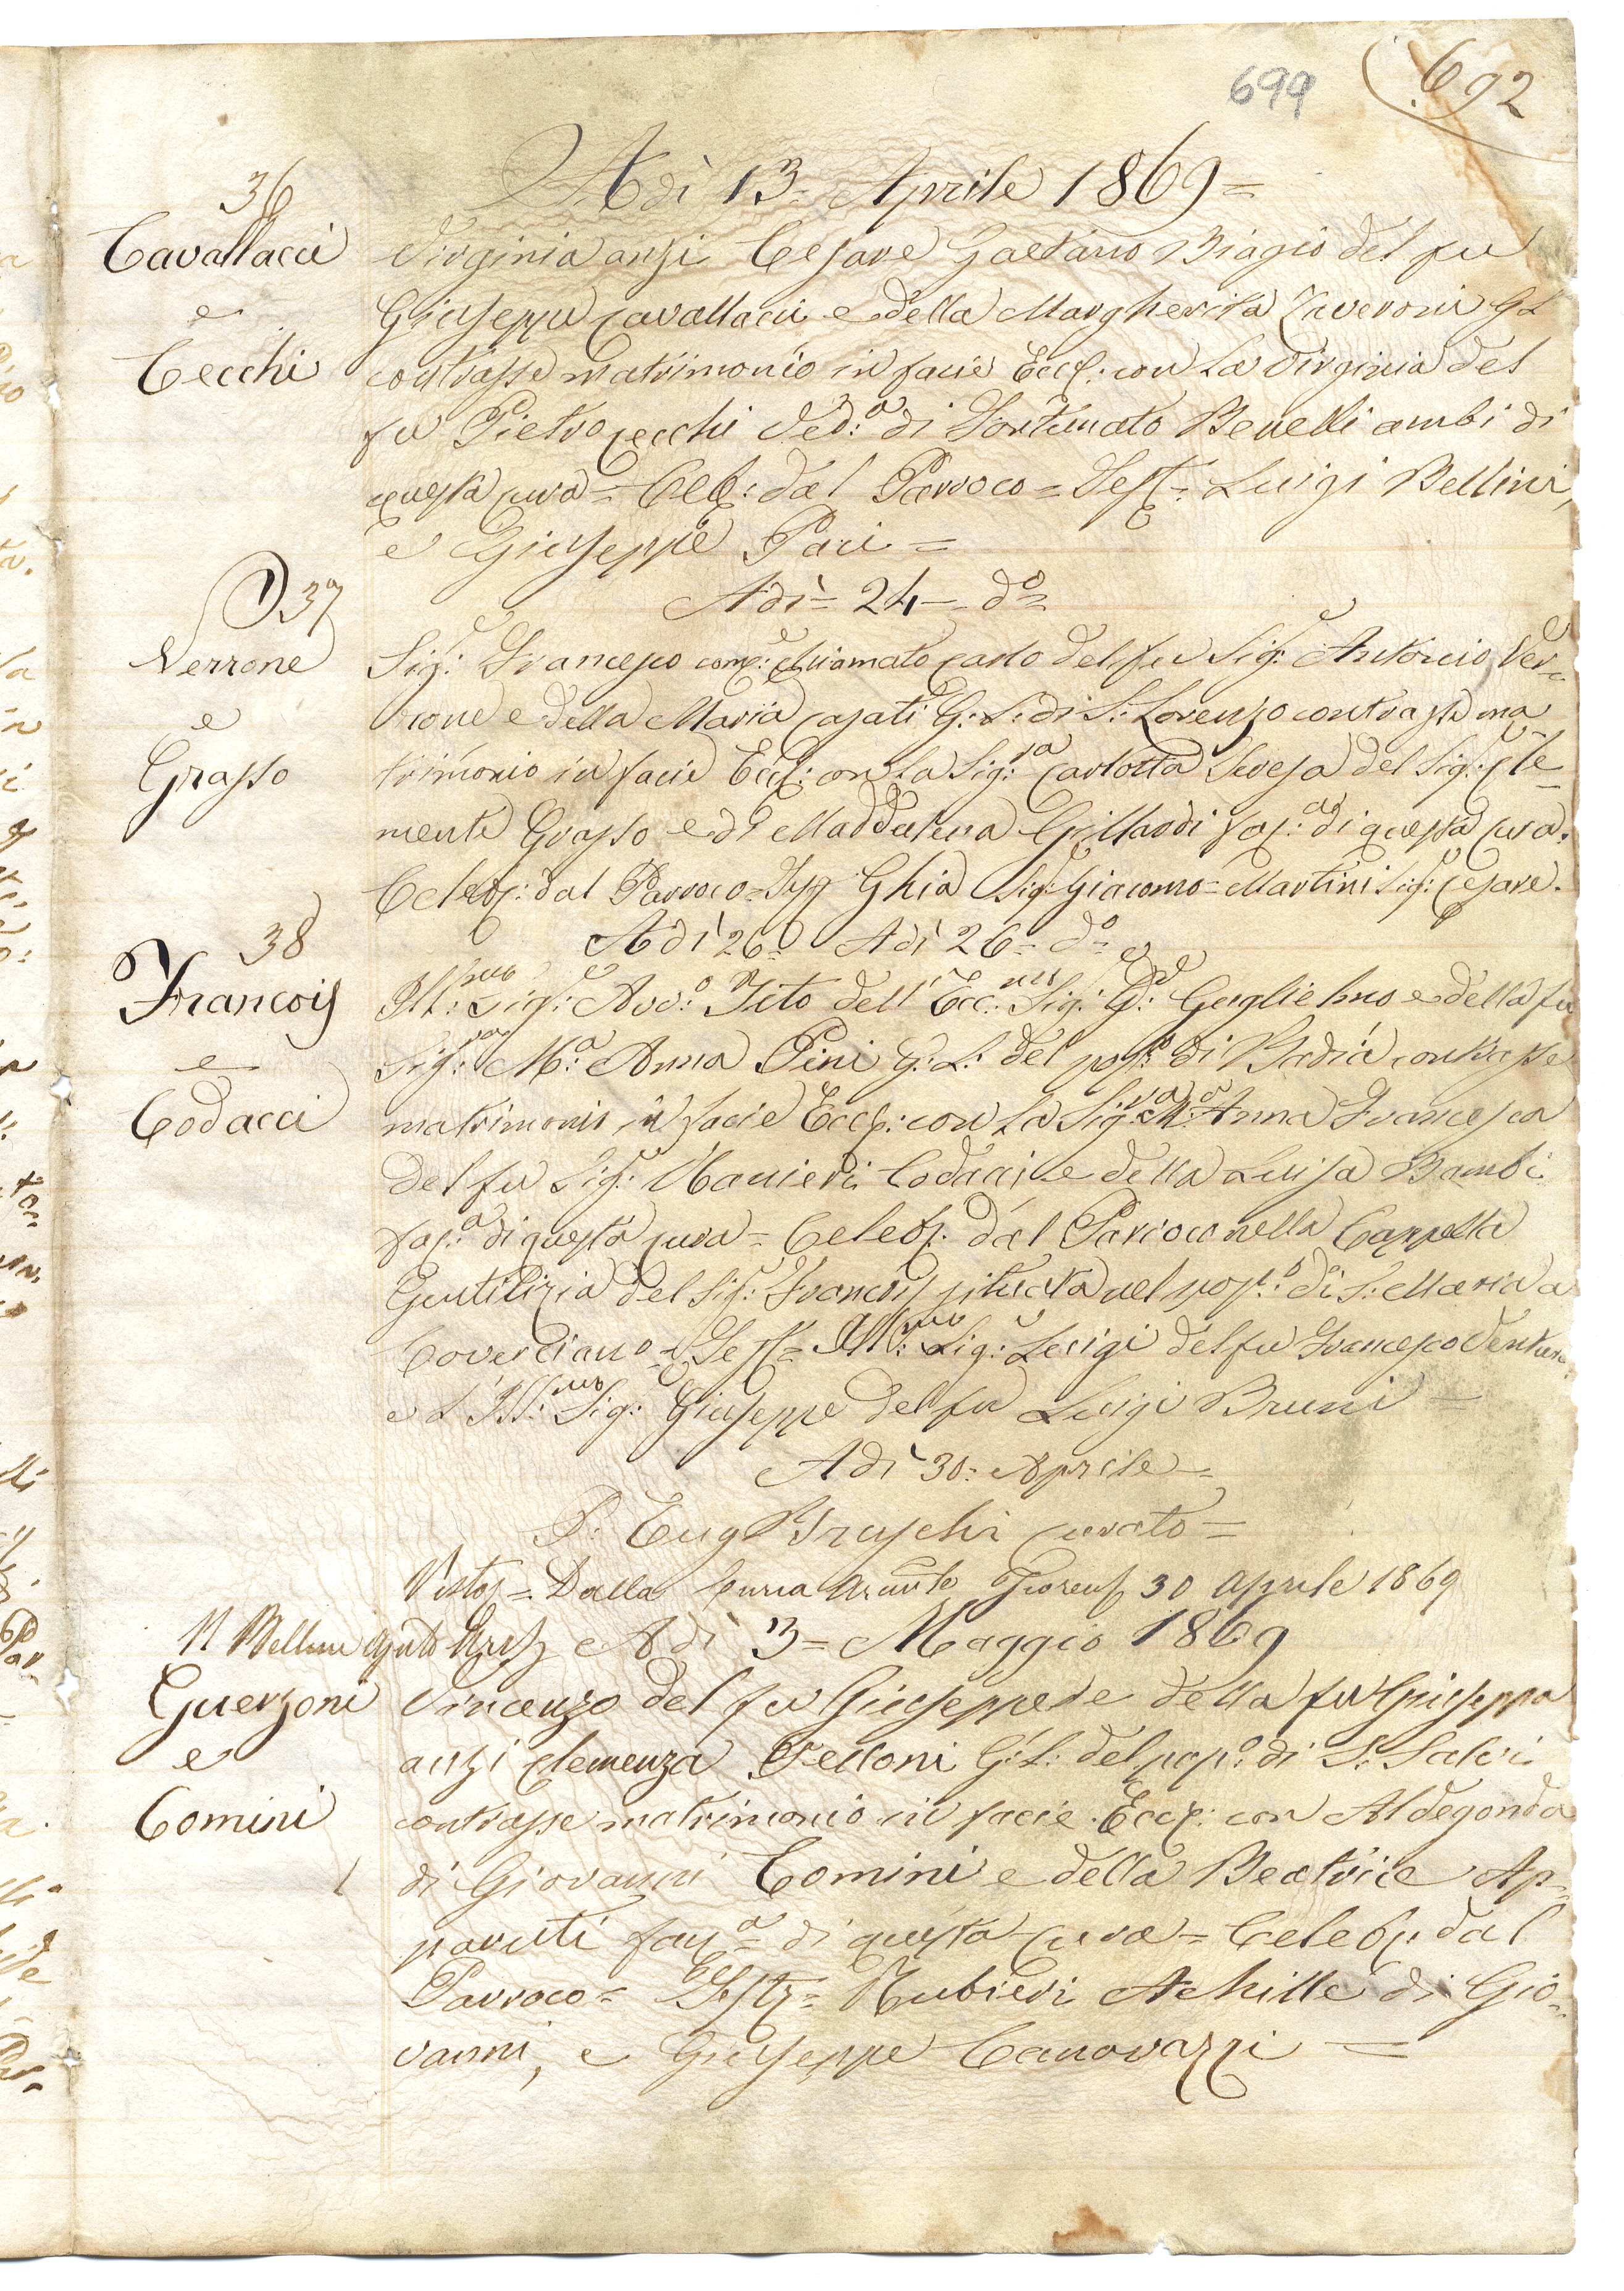 699 692
Adì 13 Aprile 1869 =
36
Cavallacci
e
Cecchi
Virginia anzi Cesare Gaetano Biagio del fu
Giuseppe Cavallacci e della Margherita Taveroni G L
contrasse matrimonio in facie Eccl: con la Virginia del
fu Pietro Cecchi Ved:a di Fortunato Benelli ambi di
questa cura = Cel: dal Parroco = Test = Luigi Bellini,
e Giuseppe Paci =
Adì = 24 = do =
37
Verrone
e
Grasso
Sig:e Francesco com:e chiamato Carlo del fu Sig:e Antonio Ver=
rone e della Maria Casati G: L: di S: Lorenzo contrasse ma
trimonio in facie Eccl: con la Sig:ra Carlotta Teresa del Sig:e Cle=
mente Grasso e di Maddalena Grillardi pop:a di questa cura.
Celeb: dal Parroco = Ghia Sig:e Giacomo = Martini Sig:e Cesare.
Adì 26 = Adì 26 = do =
38
Francois
e
Codacci
Ill:mo Sig:e Avv:o Tito dell' Ecc:mo Sig:e D:e Guglielmo e della fu
Sig:ra M:a Anna Pini G: L: del pop:o di Badia contrasse
matrimonio in facie Eccl: con la Sig:ra M:a Anna Francesca
del fu Sig:e Ranieri Codacci e della Luisa Bambi
pop:a di questa cura = Celeb: dal Parroco nella Cappella
Gentilizia del Sig:e Francois situata nel pop:o di S: Maria a
Coverciano = Test = Ill:mo Sig:e Luigi del fu Francesco Ventura
e l' Ill:mo Sig: Giuseppe del fu Luigi Bruni =
Adì 30: Aprile =
P: Eug Fraschi curato =
Visto = Dalla Curia Fiorent 30 Aprile 1869
Adì 3 = Maggio 1869
Guerzoni
e
Comini
Vincenzo del fu Giuseppe e della fu Giuseppa
anzi Clemenza Felloni G: L: del pop:o di S: Salvi
contrasse matrimonio in facie Eccl: con Aldegonda
di Giovanni Comini e della Beatrice Ap=
paruti pop:a di questa cura = Celeb: dal
Parroco = Test = Rubieri Achille di Gio=
vanni, e Giuseppe Canovazzi =